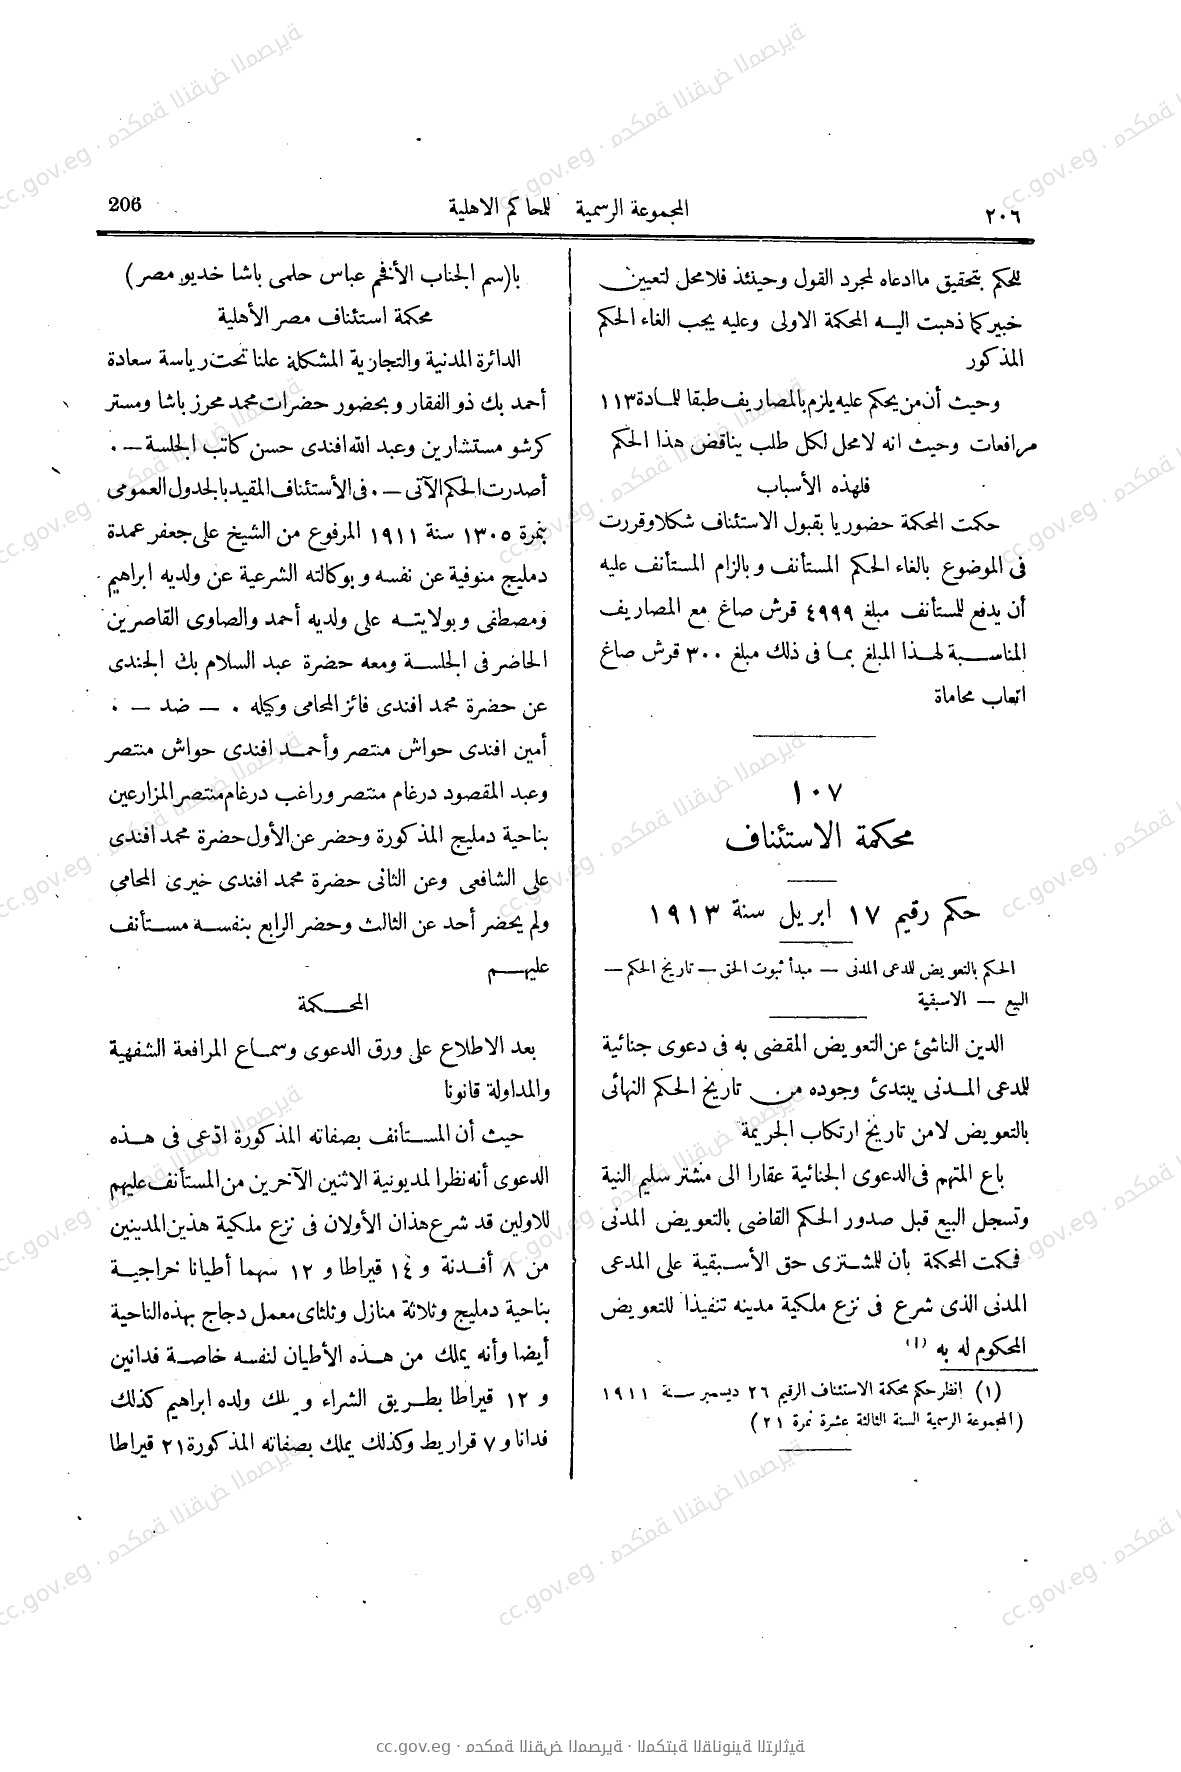 ٢٠٦
المجموعة الرسمية للمحاكم الاهلية
206
للحكم بتحقيق ماادعاه لمجرد القول وحينئذ فلا محل لتعيين
خبير كما ذهبت اليـه المحكمة الاولى وعليه يجب الغاء الحكم
المذكور
وحيث أن من يحكم عليه يلزم بالمصاريف طبقا للمـادة ١١٣
مرافعات وحيث انه لا محل لكل طلب يناقض هذا الحكم
فلهذه الأسباب
حكمت المحكمة حضوريا بقبول الاستئناف شكلا وقررت
فى الموضوع بالغاء الحكم المستأنف وبالزام المستأنف عليه
أن يدفع للمستأنف مبلغ ٤٩٩٩ قرش صاغ مع المصاريف
المناسـبة لهـذا المبلغ بمـا فى ذلك مبلغ ٣٠٠ قرش صاغ
اتعاب محاماة
١٠٧
محكمة الاستئناف
حكم رقيم ١٧ ابريل سنة ١٩١٣
الحكم بالتعويض للمدعى المدنى — مبدأ ثبوت الحق — تاريخ الحكم —
البيع — الاسبقية
الدين الناشئ عن التعويض المقضى به فى دعوى جنائية
للمدعى المـدنى يبتدئ وجوده من تاريخ الحكم النهائى
بالتعويض لا من تاريخ ارتكاب الجريمة
باع المتهم فى الدعوى الجنائية عقارا الى مشتر سليم النية
وتسجل البيع قبل صدور الحكم القاضى بالتعويض المدنى
فحكمت المحكمة بأن للمشـترى حق الأسـبقية على المدعى
المدنى الذى شرع فى نزع ملكية مدينه تنفيذا للتعويض
المحكوم له به (١)
(١) انظر حكم محكمة الاستئناف الرقيم ٢٦ ديسمبر سـنة ١٩١١
(المجموعة الرسمية السنة الثالثة عشرة نمرة ٢١)
با(سم الجناب الأفخم عباس حلمى باشا خديو مصر)
محكمة استئناف مصر الأهلية
الدائرة المدنية والتجارية المشكلة علنا تحت رياسة سعادة
أحمد بك ذو الفقار وبحضور حضرات محمد محرز باشا ومستر
كرشو مستشارين وعبد الله افندى حسن كاتب الجلسة — ٠
أصدرت الحكم الآتى — ٠ فى الأستئناف المقيد بالجدول العمومى
بنمرة ١٣٠٥ سنة ١٩١١ المرفوع من الشيخ على جعفر عمدة
دمليج منوفية عن نفسه وبوكالته الشرعية عن ولديه ابراهيم
ومصطفى وبولايتـه على ولديه أحمد والصاوى القاصرين
الحاضر فى الجلسـة ومعه حضرة عبد السلام بك الجندى
عن حضرة محمد افندى فائز المحامى وكيله ٠ — ضد — ٠
أمين افندى حواش منتصر وأحمـد افندى حواش منتصر
وعبد المقصود درغام منتصر وراغب درغام منتصر المزارعين
بناحية دمليج المذكورة وحضر عن الأول حضرة محمد افندى
على الشافعى وعن الثانى حضرة محمد افندى خيرى المحامى
ولم يحضر أحد عن الثالث وحضر الرابع بنفسـه مسـتأنف
عليهـم
المحـكمة
بعد الاطلاع على ورق الدعوى وسمـاع المرافعة الشفهية
والمداولة قانونا
حيث أن المسـتأنف بصفاته المذكورة ادّعى فى هـذه
الدعوى أنه نظرا لمديونية الاثنين الآخرين من المستأنف عليهم
للاولين قد شرع هذان الأولان فى نزع ملكية هذين المدينين
من ٨ أفـدنة و ١٤ قيراطا و ١٢ سهما أطيانا خراجيـة
بناحية دمليج وثلاثة منازل وثلثاى معمل دجاج بهذه الناحية
أيضا وأنه يملك من هـذه الأطيان لنفسه خاصـة فدانين
و ١٢ قيراطا بطـريق الشراء ويملك ولده ابراهيم كذلك
فدانا و ٧ قراريط وكذلك يملك بصفاته المذكورة ٢١ قيراطا
cc.gov.eg · محكمة النقض المصرية · المكتبة القانونية التراثية